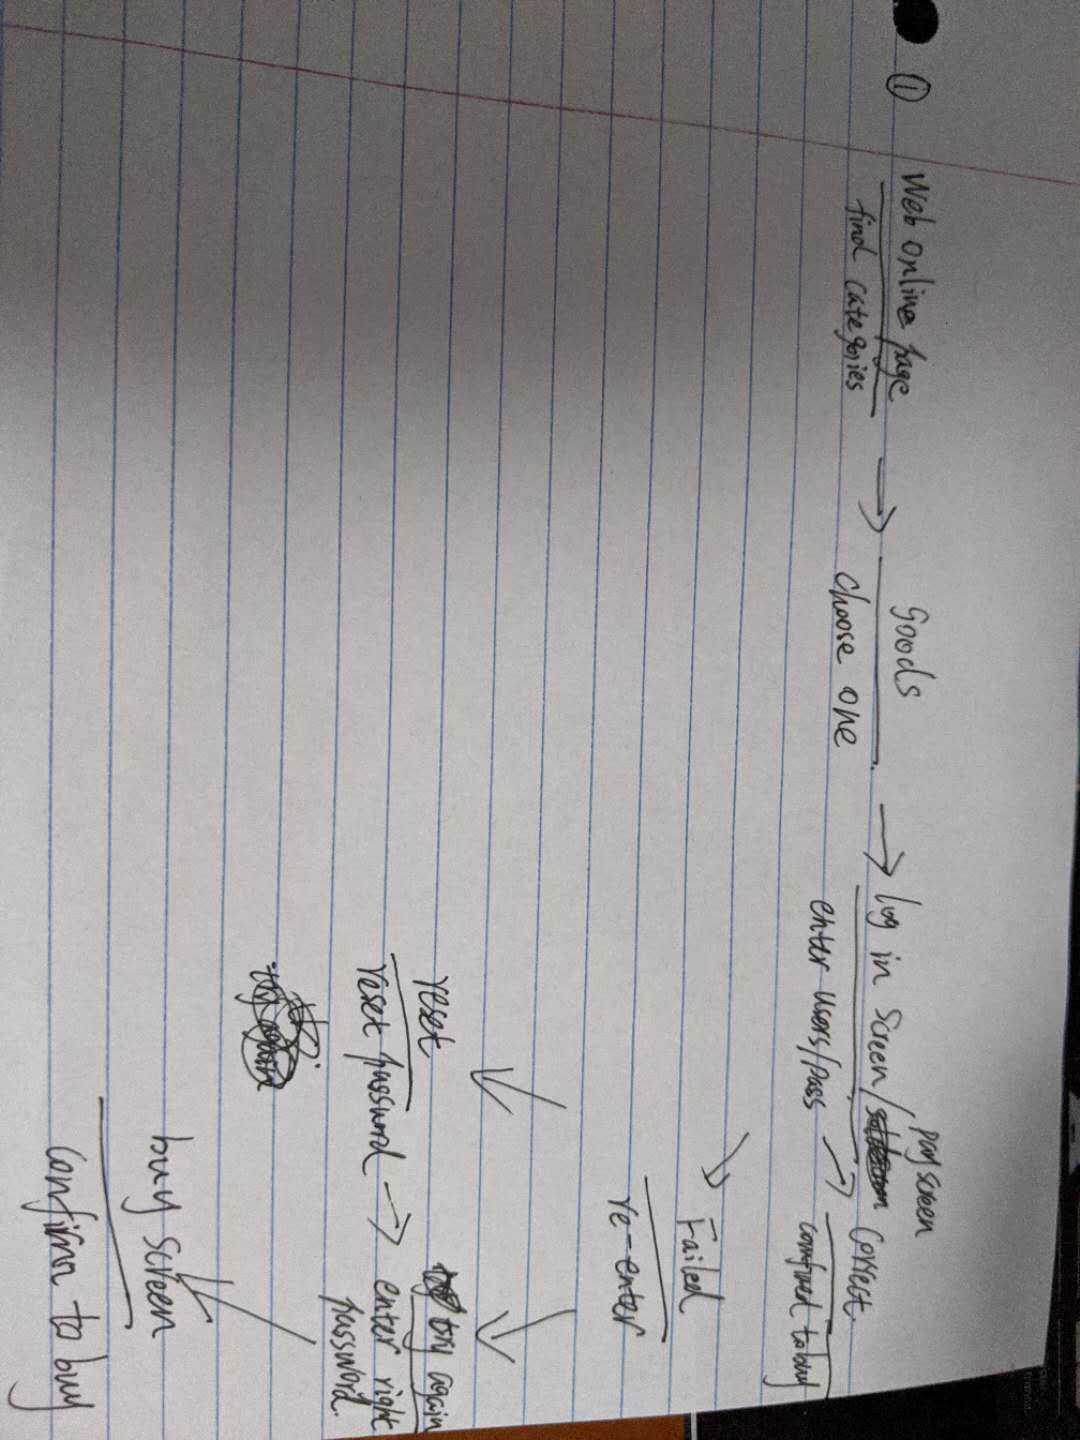 ①
Web online page
find categories
→
Goods
choose one
→
Log in Screen/
pay screen
enter users/pass
→
Correct
comfired to buy
→
Failed
re-enter
reset
reset password
→
try again
enter right
password
buy screen
confirm to buy